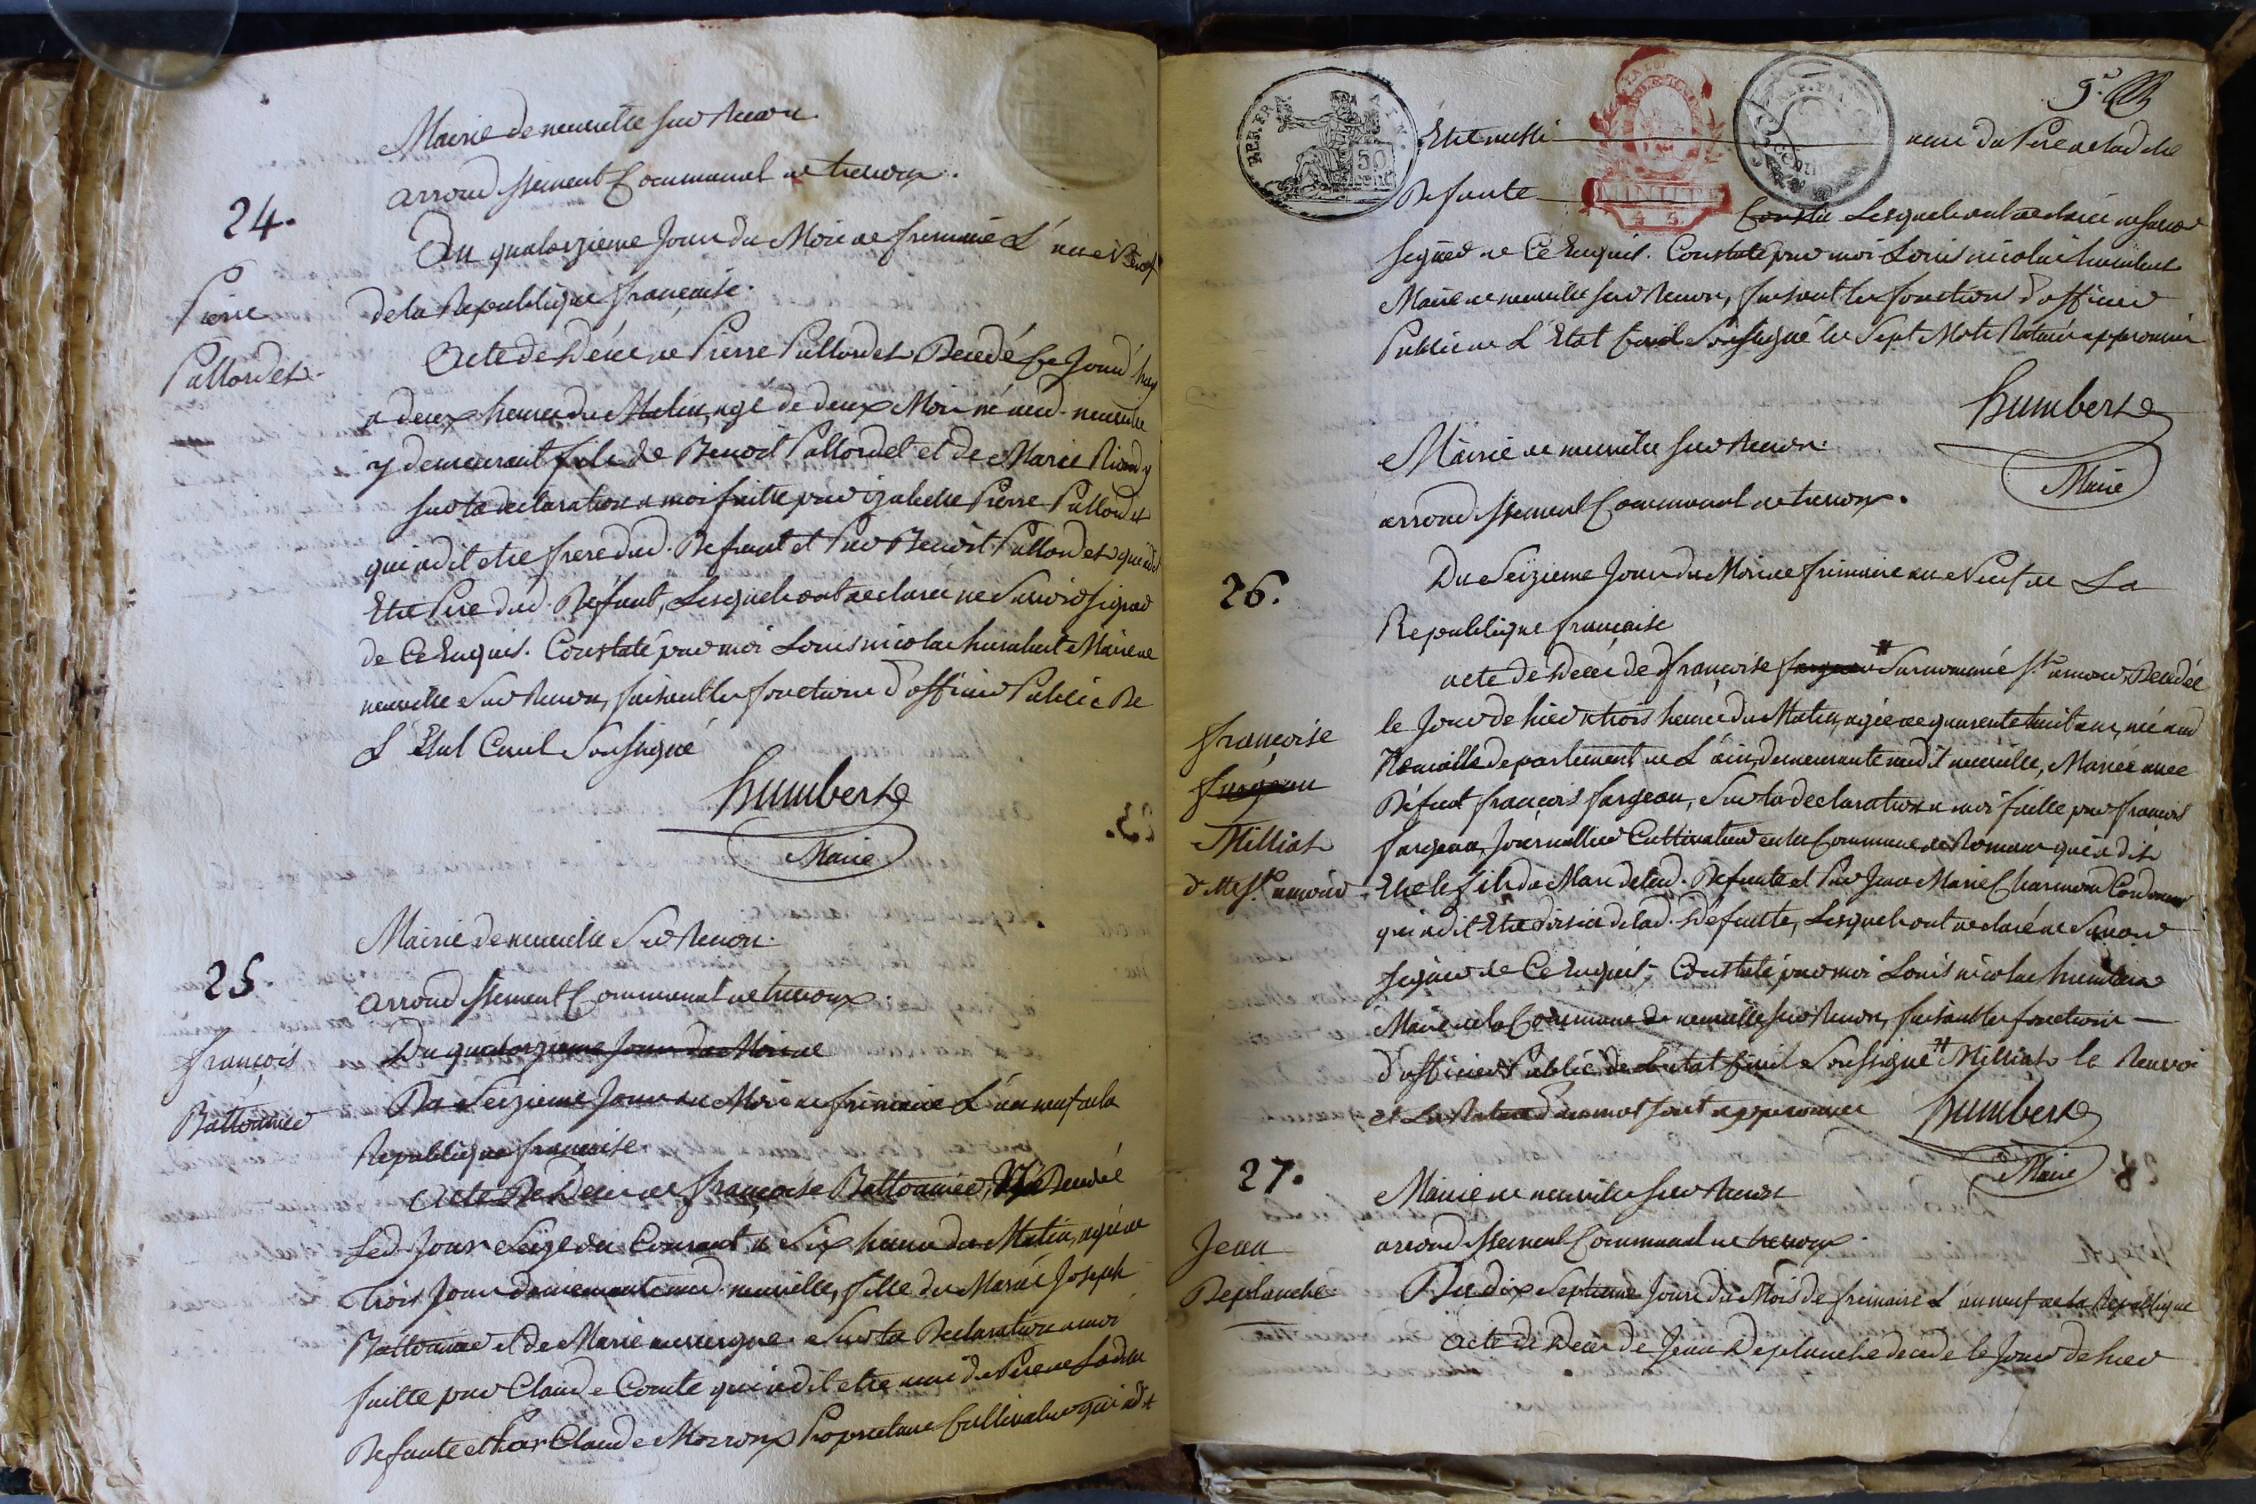 Mairie de neuville sur Renon
arrondissement Communal de trevoux.
24.
Du quatorzieme Jour du Mois de frimaire L'an Neuf
de la Republique française.
Pierre
Pallordet.
Acte de Décè de Pierre Pallordet Decedé Ce Jourd'huy
a deux heures du Matin, agé de deux Mois né aud. neuville
y demeurant fils de Benoit Pallordet et de Marie
Sur la declaration a moi faitte par Pierre Pallordet
qui a dit etre frere dud. Defunt et Par Benoit Pallordet qui a dit
Etre Pere dud. Défunt, Lesquels ont declaré ne Savoir signer
de Ce Enquis. Constaté par moi Louis nicolas humbert Maire de
neuville Sur Renon, faisant les fonctions d'officier Public De
L'Etat Civil Soussigné
humbert
Maire
23.
25
Mairie de neuville Sur Renon.
arrondissement Communal de trevoux
Du quatorzieme Jour du Mois de
françois
Du Seizieme Jour du Mois de frimaire L'an neuf de la
Republique française
Acte De Décè de françoise Decedé
Led. Jour Seize du Courant a Six heures du Matin, agée de
trois Jours demeurante aud. neuville, fille du Mariée Joseph
et de Marie auvergne. Sur la Declaration a moi
faitte par Claude Comte qui a dit etre ami du Pere de Ladite
Defunte et par Claude Morroux Proprietaire Cultivateur qui a dit
9e
REP. FRA. 50 CENT.
MINUTE
Etre aussi ami du Pere de ladite
Defunte Lesquels ont declaré ne Savoir
signer de Ce Enquis. Constaté par moi Louis nicolas humbert
Maire de neuville sur Renon, faisant les fonctions d'officier
Public de L'Etat Civil Soussigné les Sept Mots Raturés approuvés
humbert
Maire
Mairie de neuville sur Renon.
arrondissement Communal de trevoux.
26.
Du Seizieme Jour du Mois de frimaire an Neuf de La
Republique française
acte de Décè de françoise fargeau Surnommée St. amour Decedée
françoise
fargeau
Milliat
dtte St. amour
le Jour de hier a trois heures du Matin, agée de quarente huit ans, née aud
departement de L'ain, demeurante audit neuville, Mariée avec
Défunt françois fargeau, Sur la declaration a moi faitte par françois
fargeau, Journallier Cultivateur en la Commune de Romans qui a dit
Etre le fils du Mari de lad. Defunte et Par Jean Marie Charmond Cordonnier
qui a dit Etre voisin de lad. Défunte, Lesquels ont declaré ne Savoir
signer de Ce Enquis. Constaté par moi Louis nicolas humbert
Maire de la Commune de neuville sur Renon, faisant les fonctions
d'officier Public de L'etat Civil Soussigné Milliat le Renvoi
et La Rature d'un mot sont approuvés
humbert
Maire
27.
Mairie de neuville sur Renon
arrondissement Communal de trevoux.
Jean
Deplanche
Du dix Septieme Jour du Mois de frimaire L'an neuf de la Republique
Acte de Décè de Jean Deplanche decedé le Jour de hier
28